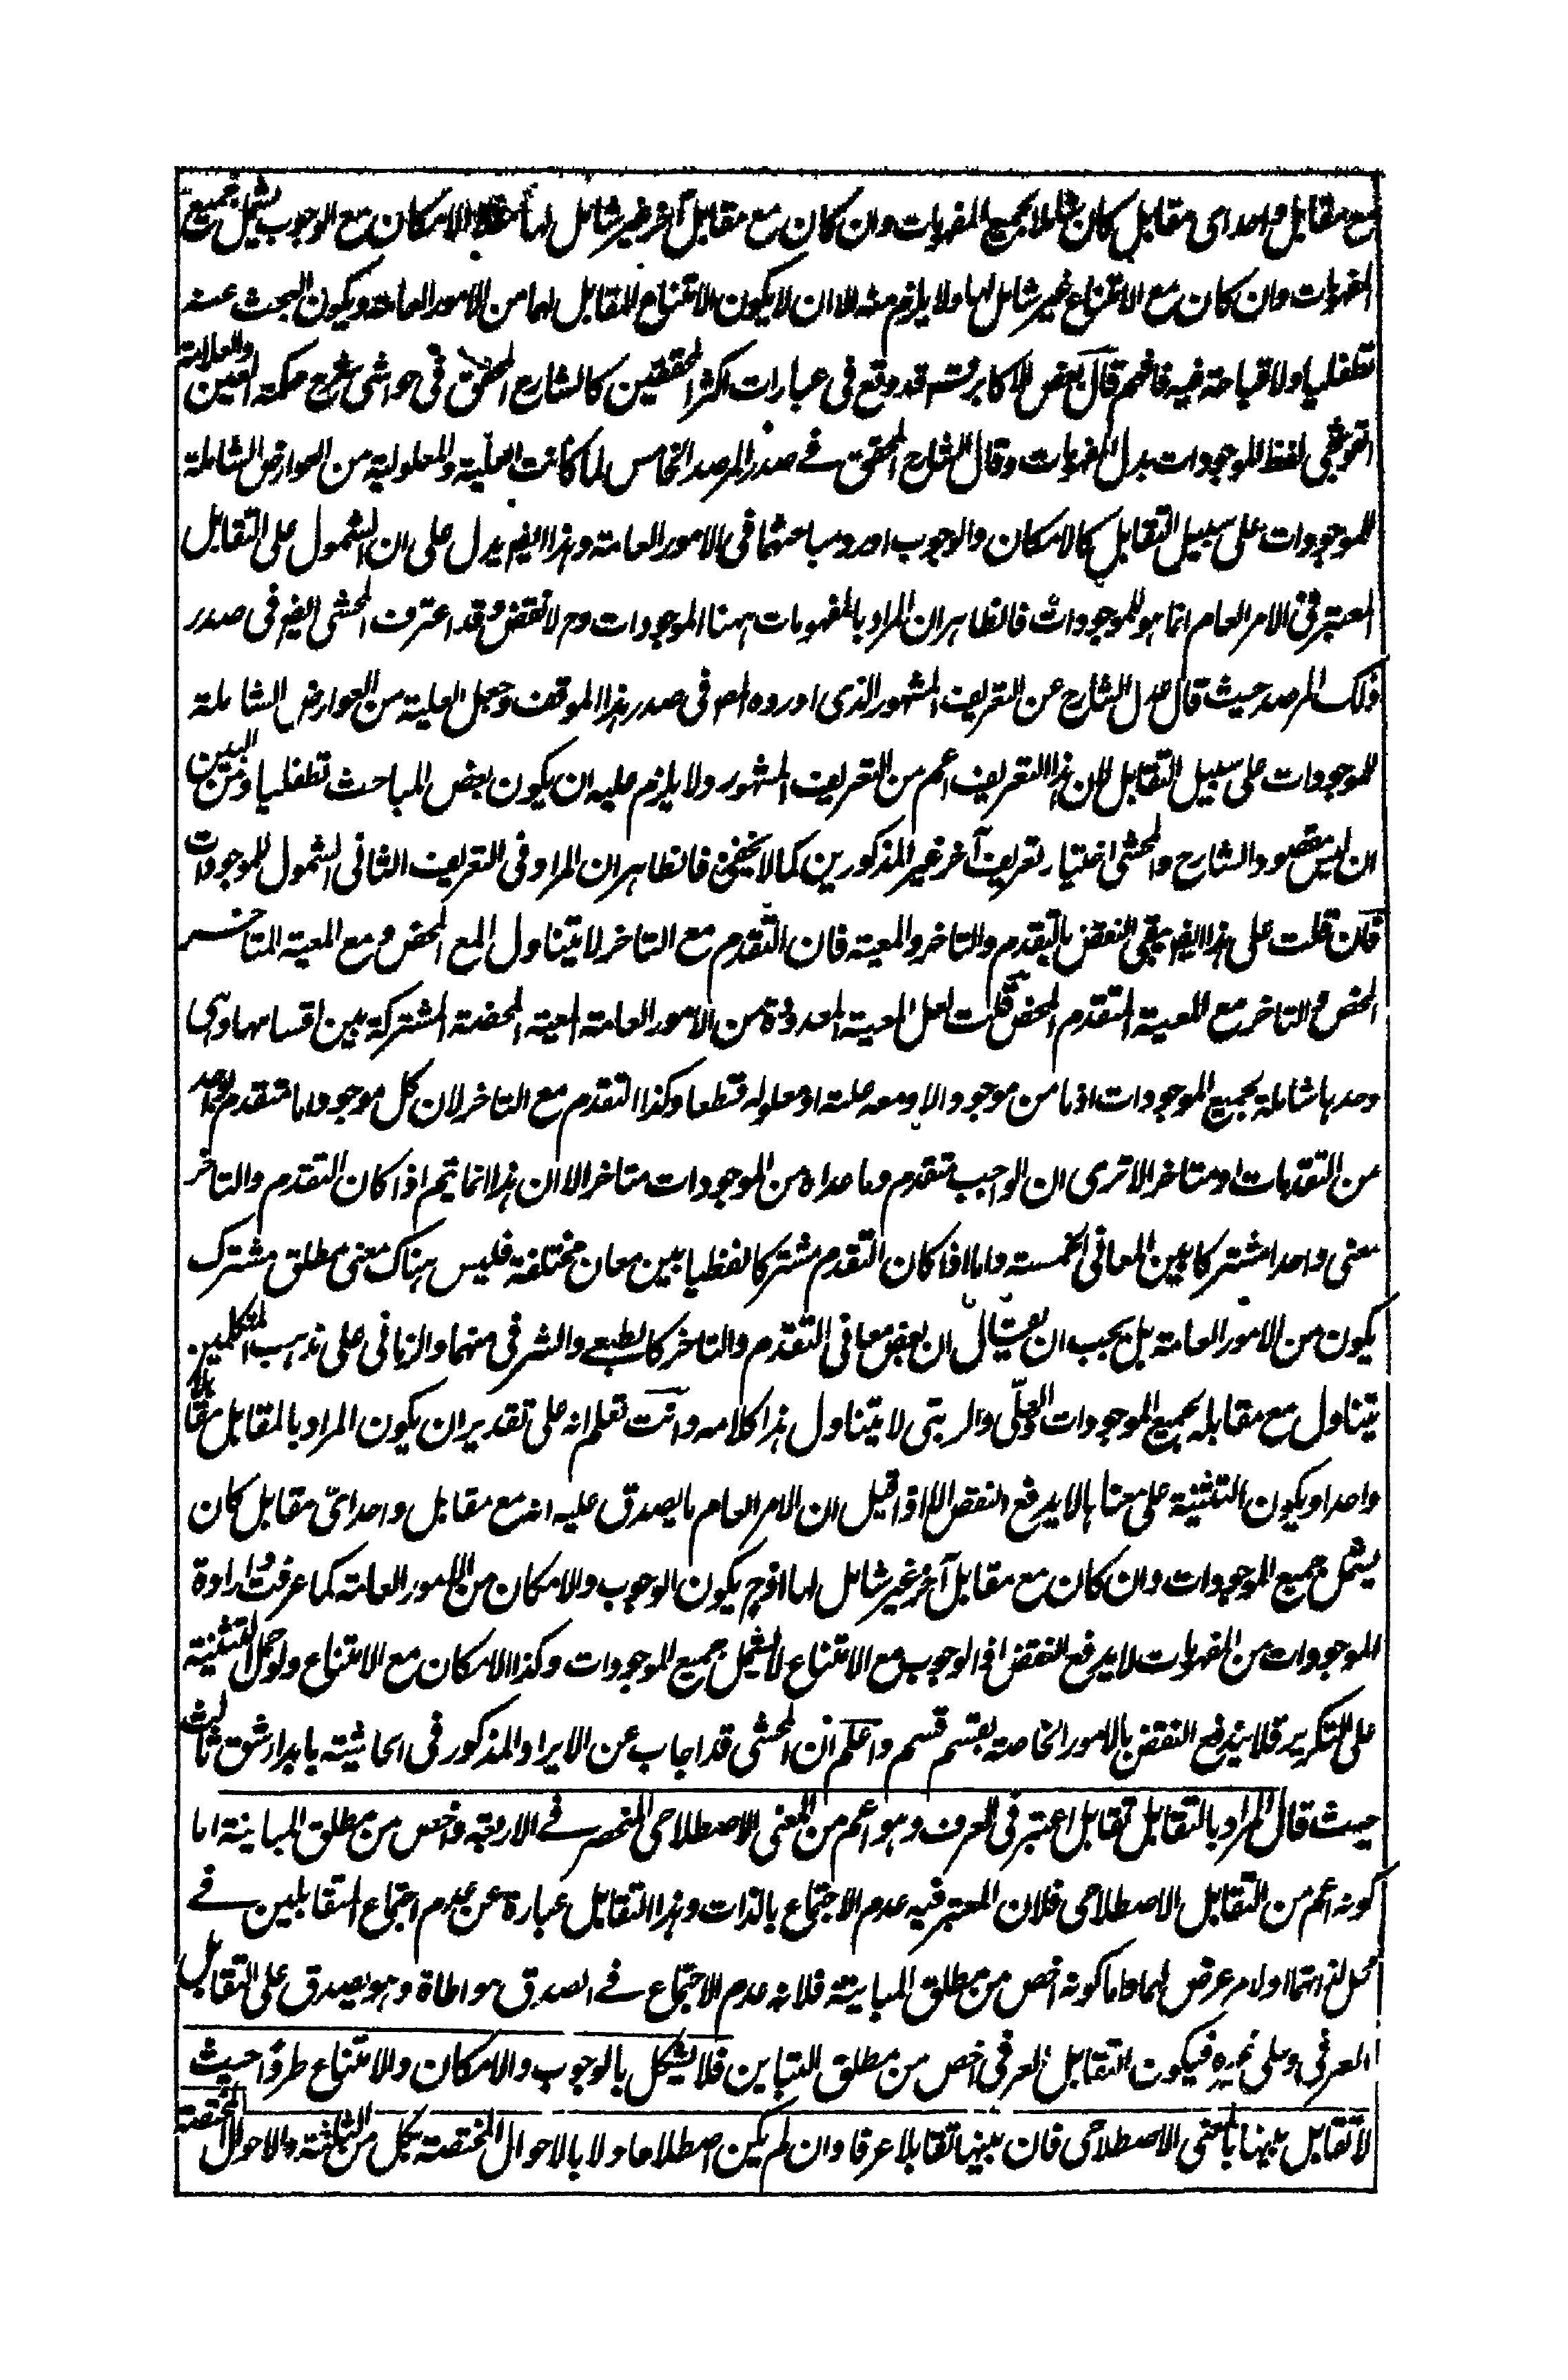 مع مقابل واحد اى مقابل كان شاملا لجميع المفهومات وان كان مع مقابل آخر غير شامل لها مثلا الامكان مع الوجوب يشمل جميع
المفهومات وان كان مع الامتناع غير شامل لها ولا يلزم منه الا ان لا يكون الامتناع المقابل لهما من الامور العامة ويكون البحث عنه
تطفليا ولا قباحة فيه فافهم قال بعض الاكابر قد وقع فى عبارات اكثر المحققين كالشارح المحقق فى حواشى شرح حكمة العين والعلامة
القوشجى لفظ الموجودات بدل المفهومات وقال الشارح المحقق فے صدر المرصد الخامس لما كانت العلية والمعلولية من العوارض الشاملة
للموجودات على سبيل التقابل كالامكان والوجوب اورد مباحثهما فى الامور العامة وهذا ايضا يدل على ان الشمول على التقابل
المعتبر فى الامر العام انما هو للموجودات فالظاهر ان المراد بالمفهومات ههنا الموجودات وح لا نقض وقد اعترف المحشى ايضا فى صدر
ذلك المرصد حيث قال عدل الشارح عن التعريف المشهور الذى اورده المص فى صدر هذا الموقف وجعل العلية من العوارض الشاملة
للموجودات على سبيل التقابل لان هذا التعريف اعم من التعريف المشهور ولا يلزم عليه ان يكون بعض المباحث تطفليا ومن البين
ان ليس مقصود الشارح والمحشى اختيار تعريف آخر غير المذكورين كما لا يخفى فالظاهر ان المراد فى التعريف الثانى الشمول للموجودات
فان قلت على هذا ايضا يبقى النقض بالتقدم والتاخر والمعية فان التقدم مع التاخر لا يتناول المع المحض ومع المعية المتاخر
المحض والتاخر مع المعية المتقدم المحض قلت لعل المعية المعدودة من الامور العامة المعية المحضة المشتركة بين اقسامها وهى
وحدها شاملة لجميع الموجودات اذ ما من موجود الا ومعه علته او معلوله قطعا وكذا التقدم مع التاخر لان كل موجود اما متقدم باحد
من التقدمات او متاخر الا ترى ان الواجب متقدم وما عداه من الموجودات متاخر الا ان هذا انما يتم اذا كان التقدم والتاخر
معنى واحدا مشتركا بين المعانى الخمسة واما اذا كان التقدم مشتركا لفظيا بين معان مختلفة فليس هناك معنى مطلق مشترك
يكون من الامور العامة بل يجب ان يقال ان بعض معانى التقدم والتاخر كالطبعے والشرفى منهما والزمانى على مذهب المتكلمين
يتناول مع مقابله جميع الموجودات والعلّى والرتبى لا يتناول هذا كلامه وانت تعلم انه على تقدير ان يكون المراد بالمقابل مقابلا
واحدا ويكون التثنية على معناها لا يدفع النقض الا اذا قيل ان الامر العام ما يصدق عليه انه مع مقابل واحد اىّ مقابل كان
يشمل جميع الموجودات وان كان مع مقابل آخر غير شامل لها اذ ح يكون الوجوب والامكان من الامور العامة كما عرفت واراده
الموجودات من المفهومات لا يدفع النقض اذ الوجوب مع الامتناع لا يشمل جميع الموجودات وكذا الامكان مع الامتناع ولو حمل التثنية
على التكرير فلا يندفع النقض بالامور الخاصة بقسم قسم واعلم ان المحشى قد اجاب عن الايراد المذكور فى الحاشية بابداء شق ثالث
حيث قال المراد بالتقابل تقابل اعتبر فى العرف وهو اعم من المعنى الاصطلاحى المنحصر فے الاربعة واخص من مطلق المباينة اما
كونه اعم من التقابل الاصطلاحى فلان المعتبر فيه عدم الاجتماع بالذات وهذا التقابل عبارة عن عدم اجتماع المتقابلين فے
محل لذاتهما او لامر عرض لهما واما كونه اخص من مطلق المباينة فلانه عدم الاجتماع فے الصدق مواطاة وهو يصدق على التقابل
العرفى وعلى غيره فيكون التقابل العرفى اخص من مطلق التباين فلا يشكل بالوجوب والامكان والامتناع طردًا حيث
لا تقابل بينها بالمعنى الاصطلاحى فان بينها تقابلا عرفا وان لم يكن اصطلاحا ولا بالاحوال المختصة بكل من الثلثة والاحوال المختصة